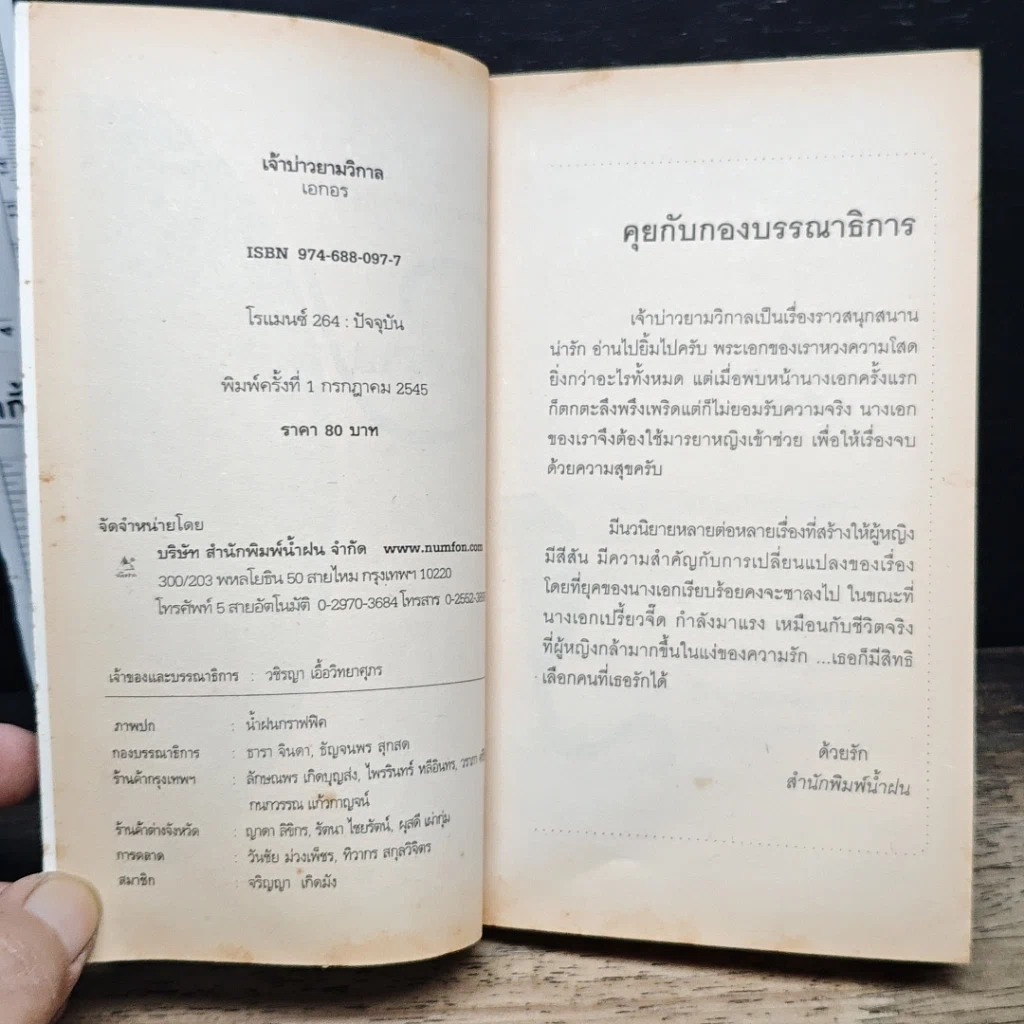 เจ้าบ่าวยามวิกาล
เอกอร
ISBN 974-688-097-7
โรแมนซ์ 264 : ปัจจุบัน
พิมพ์ครั้งที่ 1 กรกฎาคม 2545
ราคา 80 บาท
จัดจำหน่ายโดย
บริษัท สำนักพิมพ์น้ำฝน จำกัด www.numfon.com
300/203 พหลโยธิน 50 สายไหม กรุงเทพฯ 10220
โทรศัพท์ 5 สายอัตโนมัติ 0-2970-3684 โทรสาร
เจ้าของและบรรณาธิการ : วชิรญา เอื้อวิทยาศุภร
ภาพปก : น้ำฝนกราฟฟิค
กองบรรณาธิการ : ธารา จินดา, ธัญจนพร สุกสด
ร้านค้ากรุงเทพฯ : ลักษณพร เกิดบุญส่ง, ไพรรินทร์ หลีอินทร,
กนกวรรณ แก้วกาญจน์
ร้านค้าต่างจังหวัด : ญาดา ลิขิกร, รัตนา ไชยรัตน์, ผุสดี เผ่ากุ่ม
การตลาด : วันชัย ม่วงเพ็ชร, ทิวากร สกุลวิจิตร
สมาชิก : จริญญา เกิดมัง
คุยกับกองบรรณาธิการ
เจ้าบ่าวยามวิกาลเป็นเรื่องราวสนุกสนาน
น่ารัก อ่านไปยิ้มไปครับ พระเอกของเราหวงความโสด
ยิ่งกว่าอะไรทั้งหมด แต่เมื่อพบหน้านางเอกครั้งแรก
ก็ตกตะลึงพรึงเพริดแต่ก็ไม่ยอมรับความจริง นางเอก
ของเราจึงต้องใช้มารยาหญิงเข้าช่วย เพื่อให้เรื่องจบ
ด้วยความสุขครับ
มีนวนิยายหลายต่อหลายเรื่องที่สร้างให้ผู้หญิง
มีสีสัน มีความสำคัญกับการเปลี่ยนแปลงของเรื่อง
โดยที่ยุคของนางเอกเรียบร้อยคงจะซาลงไป ในขณะที่
นางเอกเปรี้ยวจี๊ด กำลังมาแรง เหมือนกับชีวิตจริง
ที่ผู้หญิงกล้ามากขึ้นในแง่ของความรัก ...เธอก็มีสิทธิ
เลือกคนที่เธอรักได้
ด้วยรัก
สำนักพิมพ์น้ำฝน